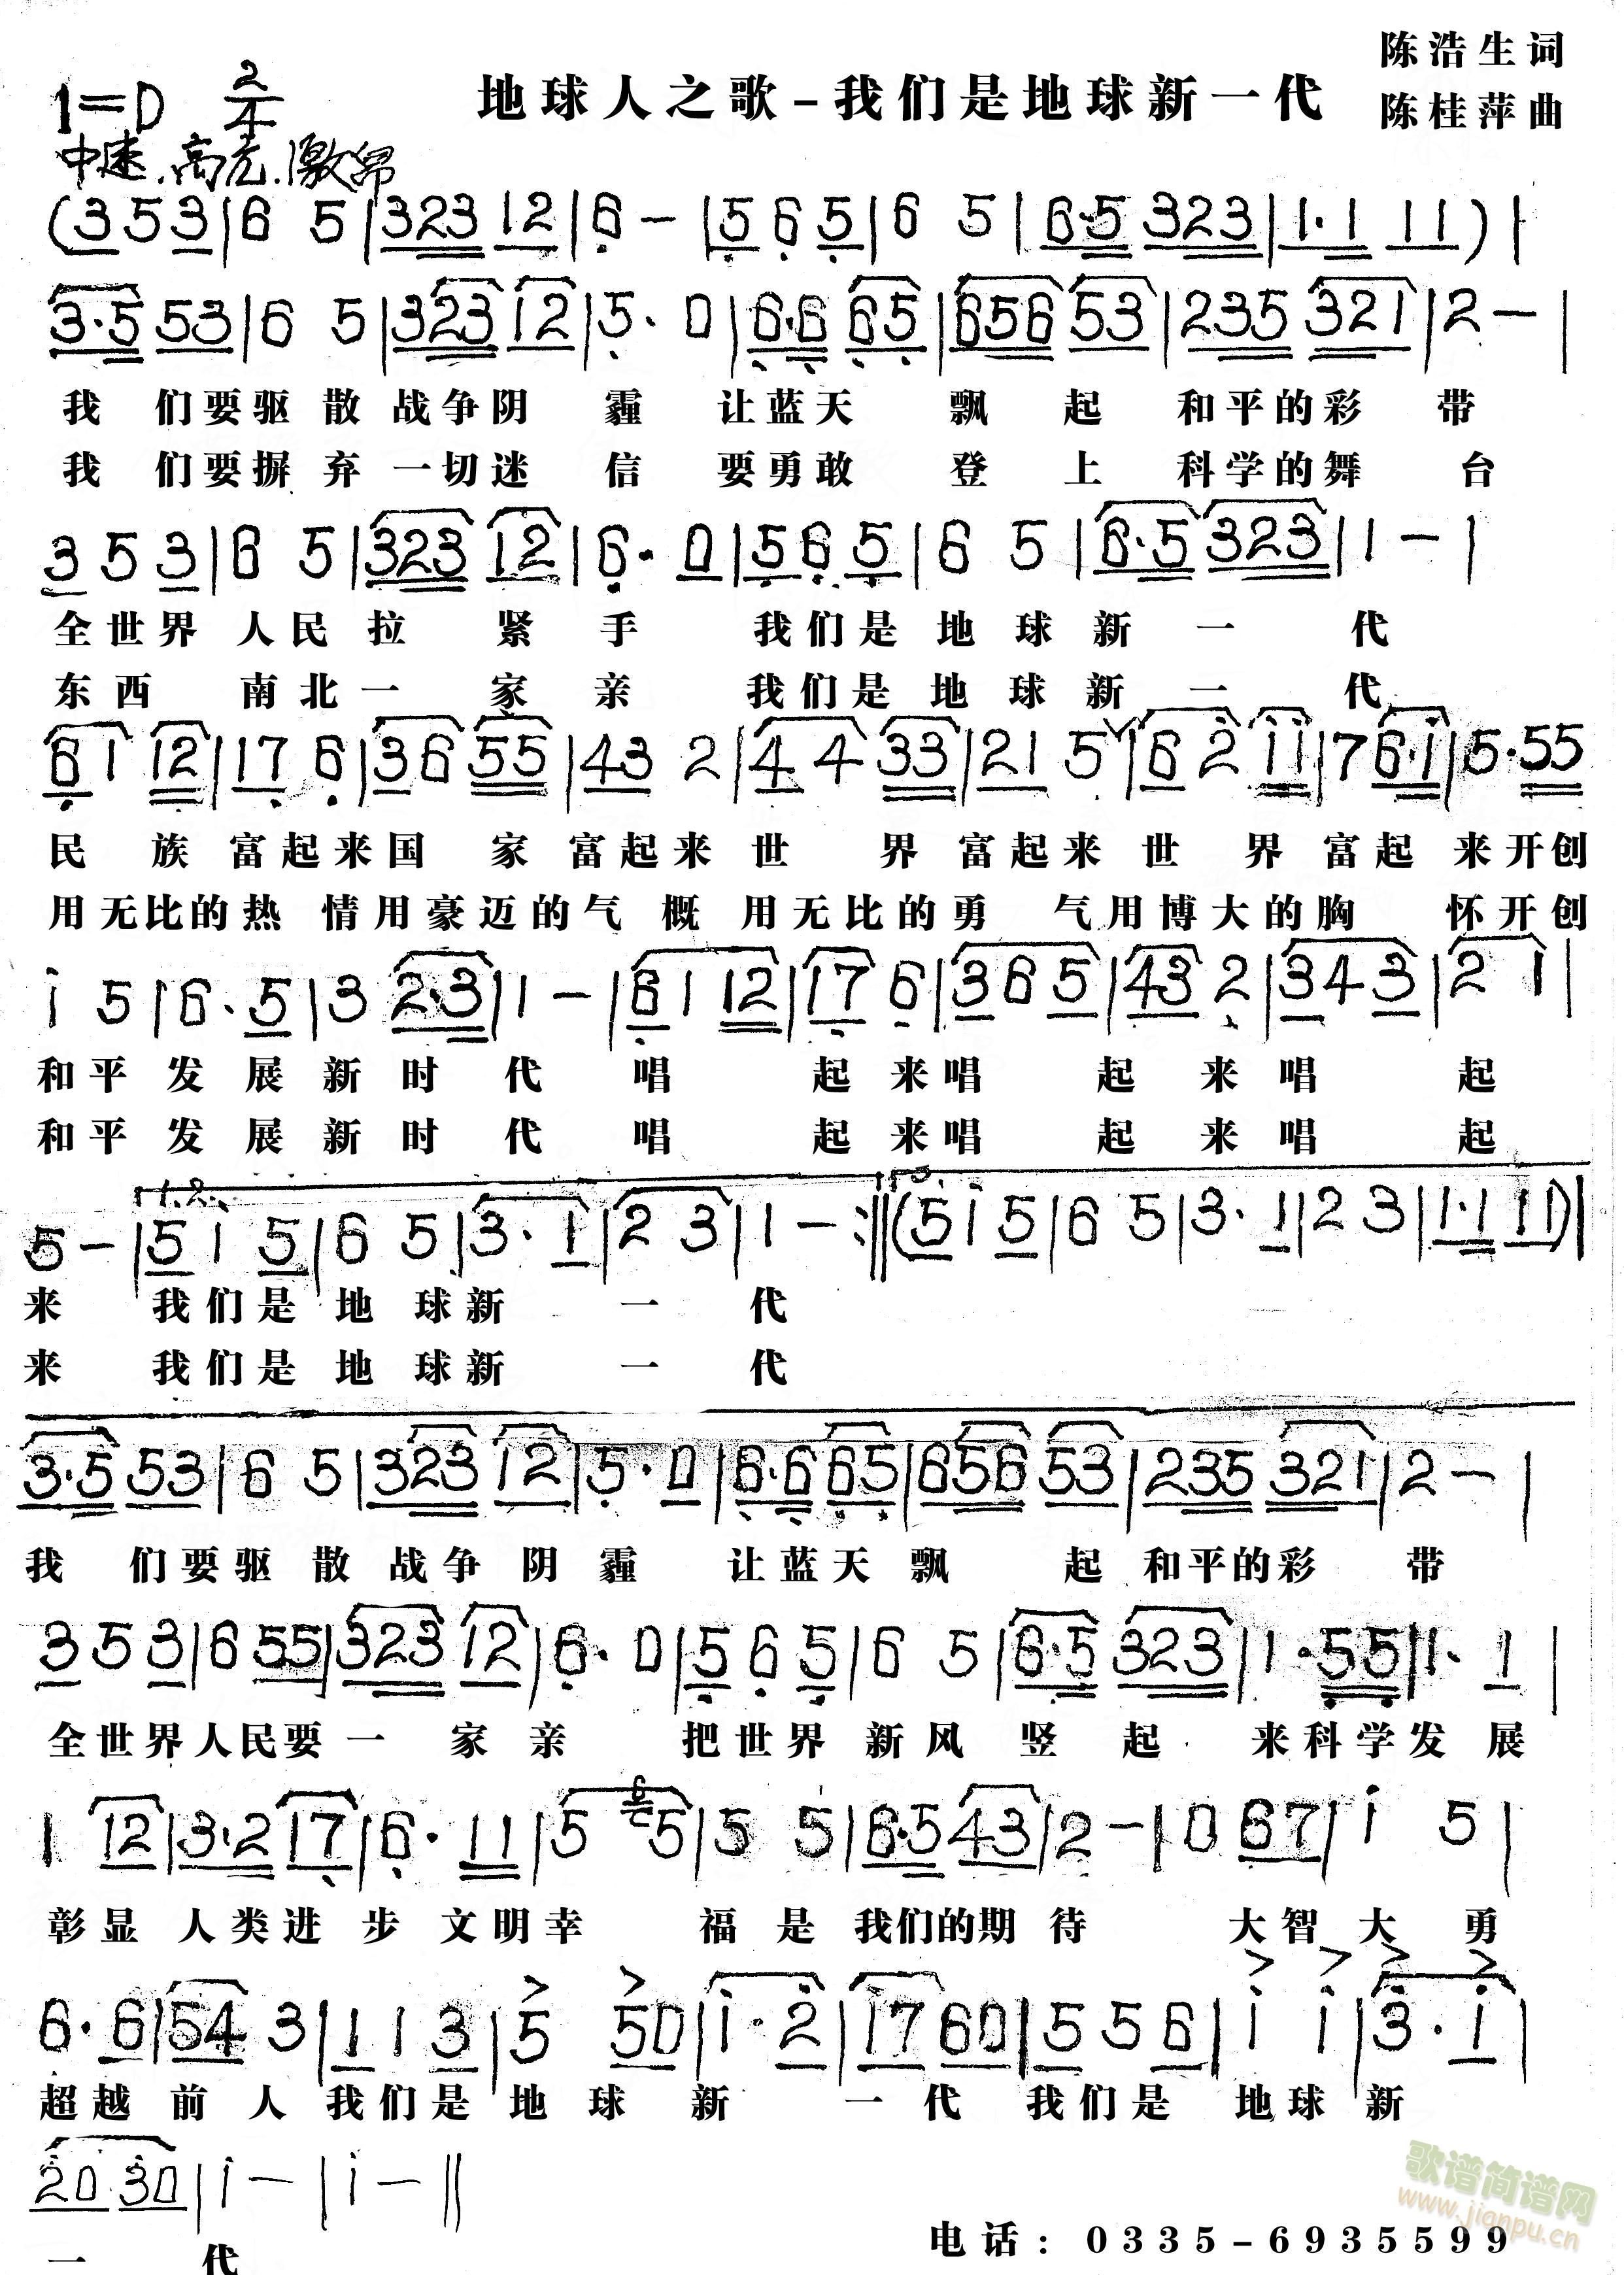 地球人之歌-我们是地球新一代
陈浩生词
陈桂萍曲
1=D 2/4
中速.高亢.激昂
(3 5 3|6 5|323 12|6 -|5 6 5|6 5|6·5 323|1·1 11)|
3·5 53|6 5|323 12|5· 0|6·6 65|656 53|235 321|2 -|
我们要驱散战争阴霾让蓝天飘起和平的彩带
我们要摒弃一切迷信要勇敢登上科学的舞台
3 5 3|6 5|323 12|6· 0|5 6 5|6 5|6·5 323|1 -|
全世界人民拉紧手我们是地球新一代
东西南北一家亲我们是地球新一代
6 1 12|17 6|3 6 55|43 2|4 4 33|21 5|6 2 11|7 6·1|5·55
民族富起来国家富起来世界富起来世界富起来开创
用无比的热情用豪迈的气概用无比的勇气用博大的胸怀开创
1 5|6·5|3 2·3|1 -|6 1 12|17 6|3 6 5|43 2|3 4 3|2 1|
和平发展新时代唱起来唱起来唱起
和平发展新时代唱起来唱起来唱起
1.2. 3.
5 -|5 1 5|6 5|3·1|2 3|1 -:‖(5 1 5|6 5|3·1|2 3|1·1 11)|
来我们是地球新一代
来我们是地球新一代
3·5 53|6 5|323 12|5·0|6·6 65|656 53|235 321|2 -|
我们要驱散战争阴霾让蓝天飘起和平的彩带
3 5 3|6 55|323 12|6·0|5 6 5|6 5|6·5 323|1·55|1·1|
全世界人民要一家亲把世界新风竖起来科学发展
1 12|3·2 17|6·11|5 5|5 5|6·5 43|2 -|0 67|1 5|
彰显人类进步文明幸福是我们的期待大智大勇
6·6|54 3|1 1 3|5 50|1·2|17 60|5 5 6|1 1|3·1|
超越前人我们是地球新一代我们是地球新
20 30|1 -|1 -‖
一代
电话：0335-6935599
歌谱简谱网
www.jianpu.cn